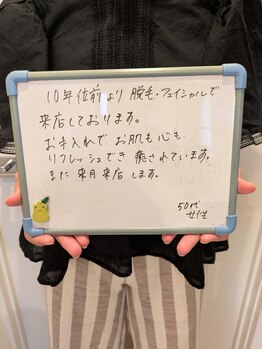 10年位前より脱毛・フェイシャルで
来店しております。
お手入れでお肌も心も
リフレッシュでき癒されています。
また来月来店します。
50代
女性